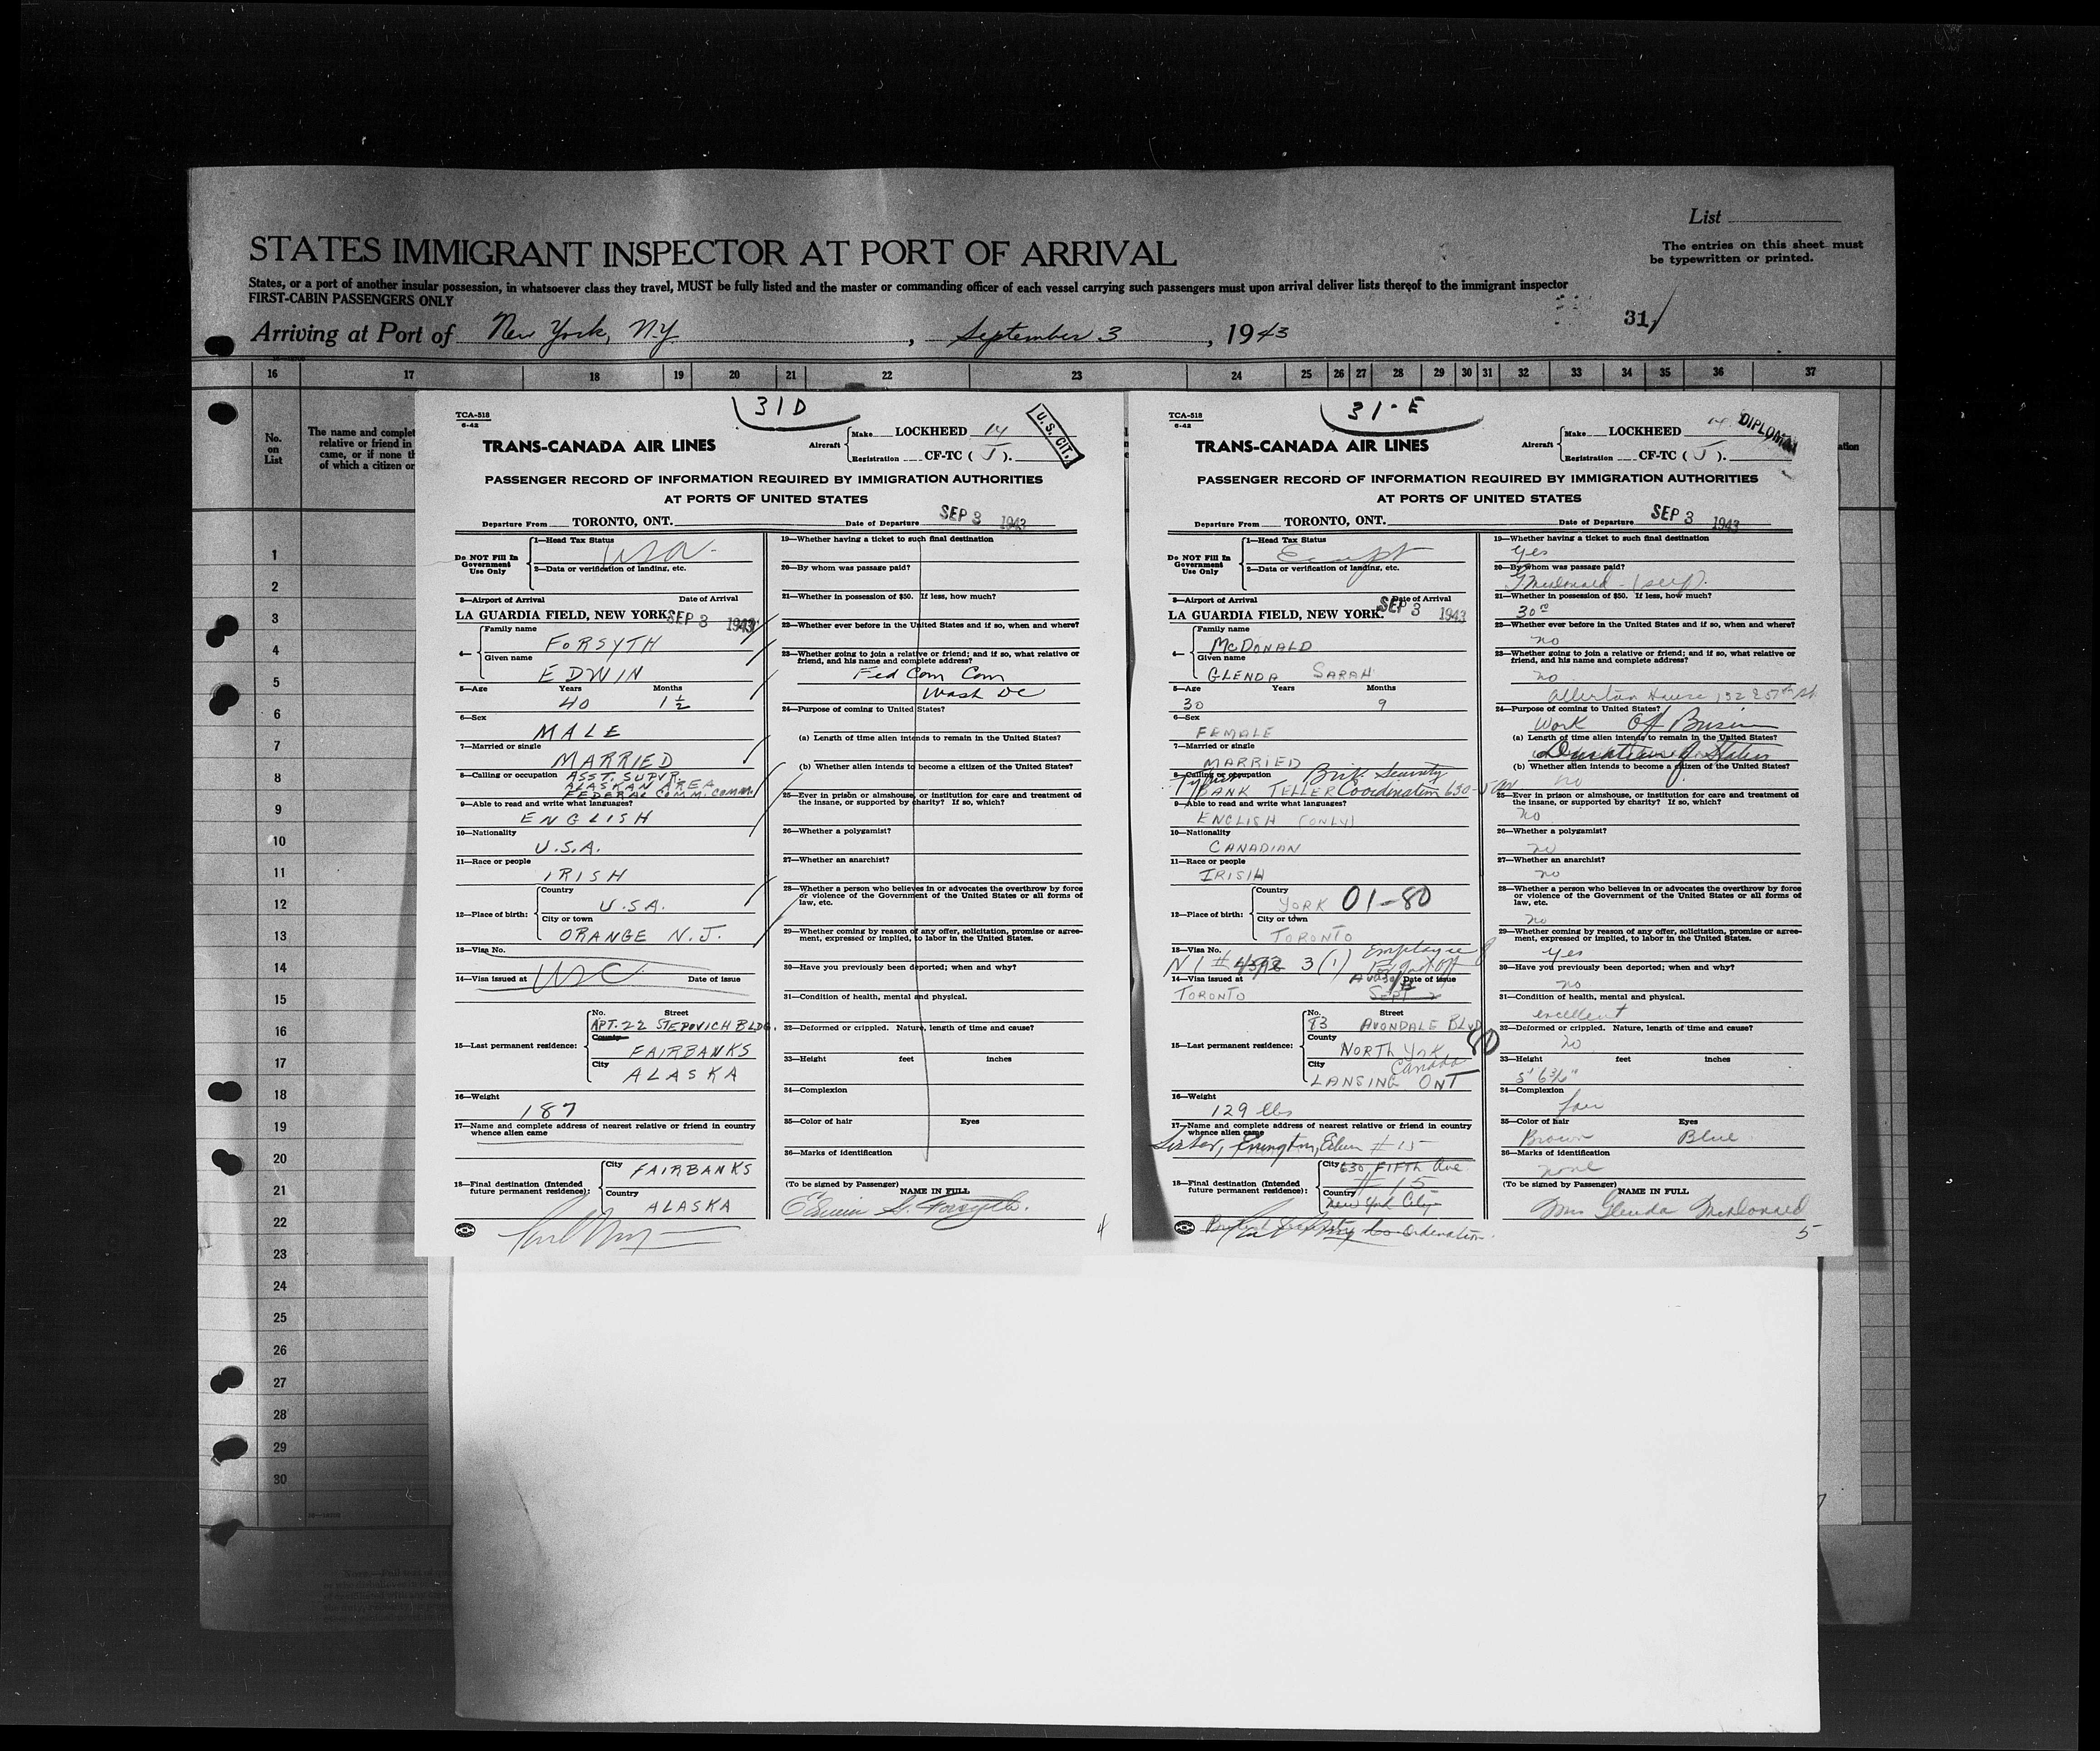 List
The entries on this sheet must
be typewritten or printed.
STATES IMMIGRANT INSPECTOR AT PORT OF ARRIVAL
States, or a port of another insular possession, in whatsoever class they travel, MUST be fully listed and the master or commanding officer of each vessel carrying such passengers must upon arrival deliver lists thereof to the immigrant inspector
FIRST-CABIN PASSENGERS ONLY
31/
Arriving at Port of New York, N.Y., September 3, 1943
16 17 18 19 20 21 22 23 24 25 26 27 28 29 30 31 32 33 34 35 36 37
No.
on
List
The name and complet
relative or friend in
came, or if none th
of which a citizen or
1
2
3
4
5
6
7
8
9
10
11
12
13
14
15
16
17
18
19
20
21
22
23
24
25
26
27
28
29
30
31D
TCA-518
6-42
TRANS-CANADA AIR LINES
Aircraft
Make LOCKHEED 14
Registration CF-TC ( J ).
U.S. CIT.
PASSENGER RECORD OF INFORMATION REQUIRED BY IMMIGRATION AUTHORITIES
AT PORTS OF UNITED STATES
Departure From TORONTO, ONT. Date of Departure SEP 3 1943
Do NOT Fill In
Government
Use Only
1—Head Tax Status
USA
2—Data or verification of landing, etc.
3—Airport of Arrival Date of Arrival
LA GUARDIA FIELD, NEW YORK. SEP 3 1943
4—
Family name
FORSYTH
Given name
EDWIN
5—Age Years Months
40 1½
6—Sex
MALE
7—Married or single
MARRIED
8—Calling or occupation ASST. SUPVR.
ALASKAN AREA
FEDERAL COMM. COMM.
9—Able to read and write what languages?
ENGLISH
10—Nationality
U.S.A.
11—Race or people
IRISH
12—Place of birth:
Country
U.S.A.
City or town
ORANGE N.J.
13—Visa No.
USC
14—Visa issued at Date of issue
15—Last permanent residence:
No. Street
APT. 22 STEPOVICH BLDG.
County
FAIRBANKS
City
ALASKA
16—Weight
187
17—Name and complete address of nearest relative or friend in country
whence alien came
18—Final destination (Intended
future permanent residence):
City FAIRBANKS
Country
ALASKA
19—Whether having a ticket to such final destination
20—By whom was passage paid?
21—Whether in possession of $50. If less, how much?
22—Whether ever before in the United States and if so, when and where?
23—Whether going to join a relative or friend; and if so, what relative or
friend, and his name and complete address?
Fed Com Com
Wash DC
24—Purpose of coming to United States?
(a) Length of time alien intends to remain in the United States?
(b) Whether alien intends to become a citizen of the United States?
25—Ever in prison or almshouse, or institution for care and treatment of
the insane, or supported by charity? If so, which?
26—Whether a polygamist?
27—Whether an anarchist?
28—Whether a person who believes in or advocates the overthrow by force
or violence of the Government of the United States or all forms of
law, etc.
29—Whether coming by reason of any offer, solicitation, promise or agree-
ment, expressed or implied, to labor in the United States.
30—Have you previously been deported; when and why?
31—Condition of health, mental and physical.
32—Deformed or crippled. Nature, length of time and cause?
33—Height feet inches
34—Complexion
35—Color of hair Eyes
36—Marks of identification
(To be signed by Passenger) NAME IN FULL
Edwin S. Forsyth.
4
31-E
TCA-518
6-42
TRANS-CANADA AIR LINES
Aircraft
Make LOCKHEED 14
Registration CF-TC ( J ).
DIPLOMA
PASSENGER RECORD OF INFORMATION REQUIRED BY IMMIGRATION AUTHORITIES
AT PORTS OF UNITED STATES
Departure From TORONTO, ONT. Date of Departure SEP 3 1943
Do NOT Fill In
Government
Use Only
1—Head Tax Status
Exempt
2—Data or verification of landing, etc.
3—Airport of Arrival Date of Arrival
LA GUARDIA FIELD, NEW YORK. SEP 3 1943
4—
Family name
McDONALD
Given name
GLENDA SARAH
5—Age Years Months
30 9
6—Sex
FEMALE
7—Married or single
MARRIED
8—Calling or occupation Brit. Security
BANK TELLER Coordination 630-5 av
9—Able to read and write what languages?
ENGLISH (ONLY)
10—Nationality
CANADIAN
11—Race or people
IRISH
12—Place of birth:
Country
YORK 01-80
City or town
TORONTO
13—Visa No. Employee of
NI # 3(1)
14—Visa issued at Date of issue
TORONTO SEPT 2
15—Last permanent residence:
No. Street
83 AVONDALE BLVD
County
NORTH YORK 80
City Canada
LANSING ONT
16—Weight
129 lbs
17—Name and complete address of nearest relative or friend in country
whence alien came
Sister, #15
18—Final destination (Intended
future permanent residence):
City 630 FIFTH Ave
#15
Country
New York City
Co-ordination
19—Whether having a ticket to such final destination
Yes
20—By whom was passage paid?
G McDonald - (self).
21—Whether in possession of $50. If less, how much?
30
22—Whether ever before in the United States and if so, when and where?
no
23—Whether going to join a relative or friend; and if so, what relative or
friend, and his name and complete address?
no
Allerton House, 57th St.
24—Purpose of coming to United States?
Work
(a) Length of time alien intends to remain in the United States?
(b) Whether alien intends to become a citizen of the United States?
no
25—Ever in prison or almshouse, or institution for care and treatment of
the insane, or supported by charity? If so, which?
no
26—Whether a polygamist?
no
27—Whether an anarchist?
no
28—Whether a person who believes in or advocates the overthrow by force
or violence of the Government of the United States or all forms of
law, etc.
no
29—Whether coming by reason of any offer, solicitation, promise or agree-
ment, expressed or implied, to labor in the United States.
Yes
30—Have you previously been deported; when and why?
no
31—Condition of health, mental and physical.
excellent
32—Deformed or crippled. Nature, length of time and cause?
no
33—Height feet inches
34—Complexion
fair
35—Color of hair Eyes
Brown Blue
36—Marks of identification
none
(To be signed by Passenger) NAME IN FULL
Mrs Glenda McDonald
5